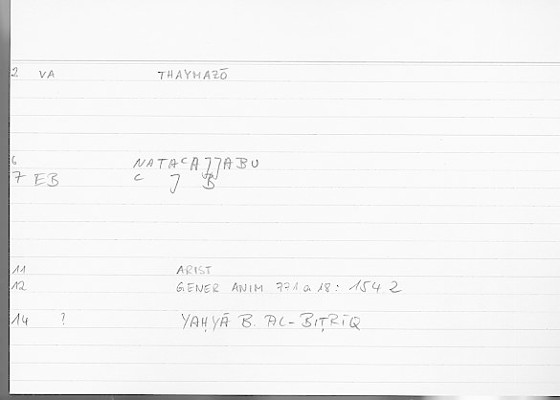 2 VA THAYMAZŌ
6 NATACAJJABU
7 EB C J B
11 ARIST
12 GENER ANIM 771 a 18: 154 2
14 ? YAḤYĀ B. AL-BIṬRĪQ